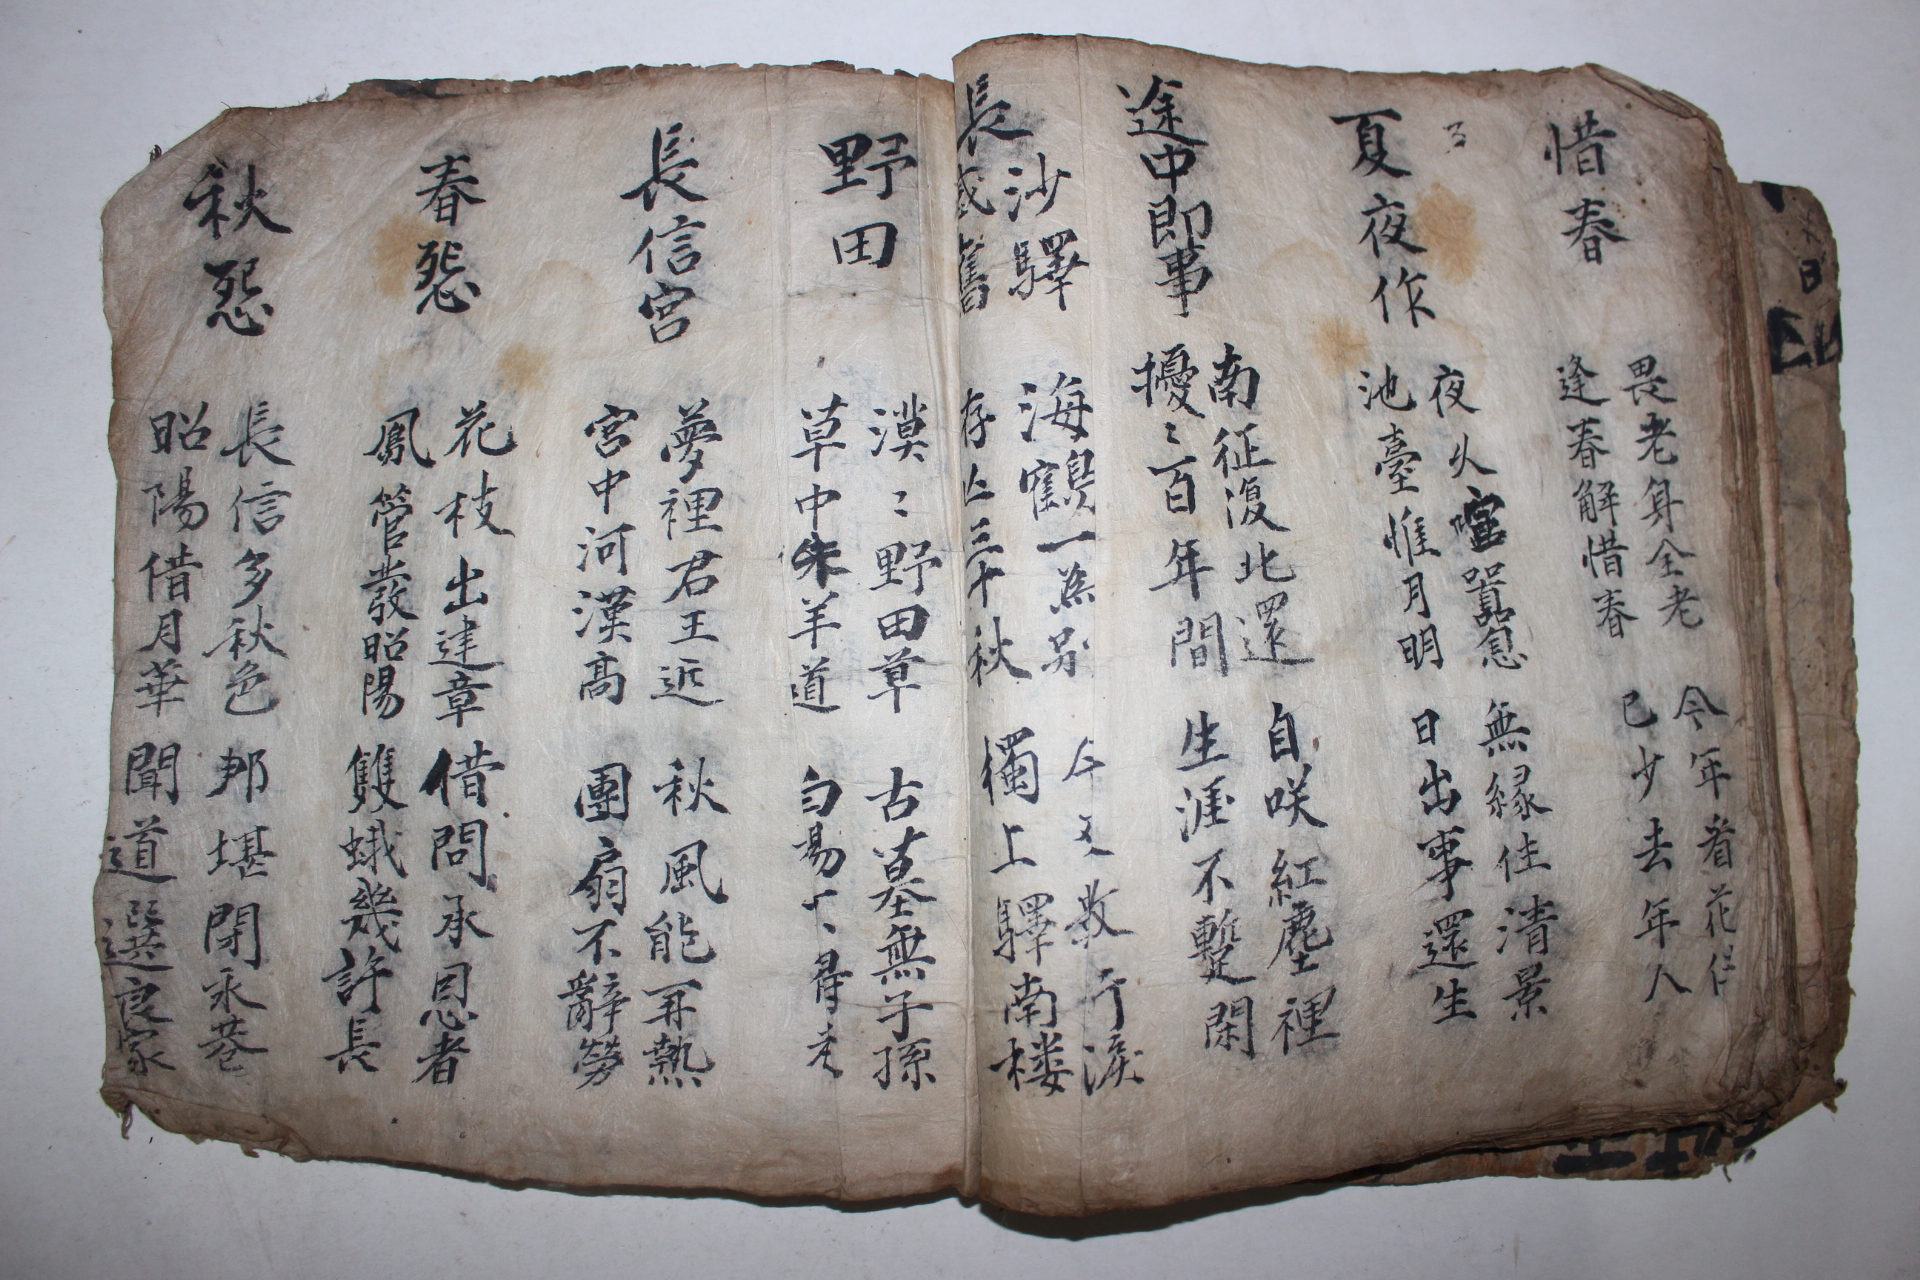 惜春
畏老身全老 今年看花伴
逢春解惜春 已少去年人
夏夜作
夜久喧囂息 無緣住清景
池臺惟月明 日出事還生
途中即事
南征復北還 自咲紅塵裡
擾〻百年間 生涯不蹔閑
長沙驛
感舊
海鶴一為別 今又數行淚
存亡三十秋 獨上驛南楼
野田
漠〻野田草 古墓無子孫
草中 羊道 白楊 得老
長信宮
夢裡君王近 秋風能再熱
宮中河漢高 團扇不辭勞
春怨
花枝出建章 借問承恩者
鳳管發昭陽 雙蛾幾許長
秋怨
長信多秋色 那堪閉永巷
昭陽借月華 聞道選良家